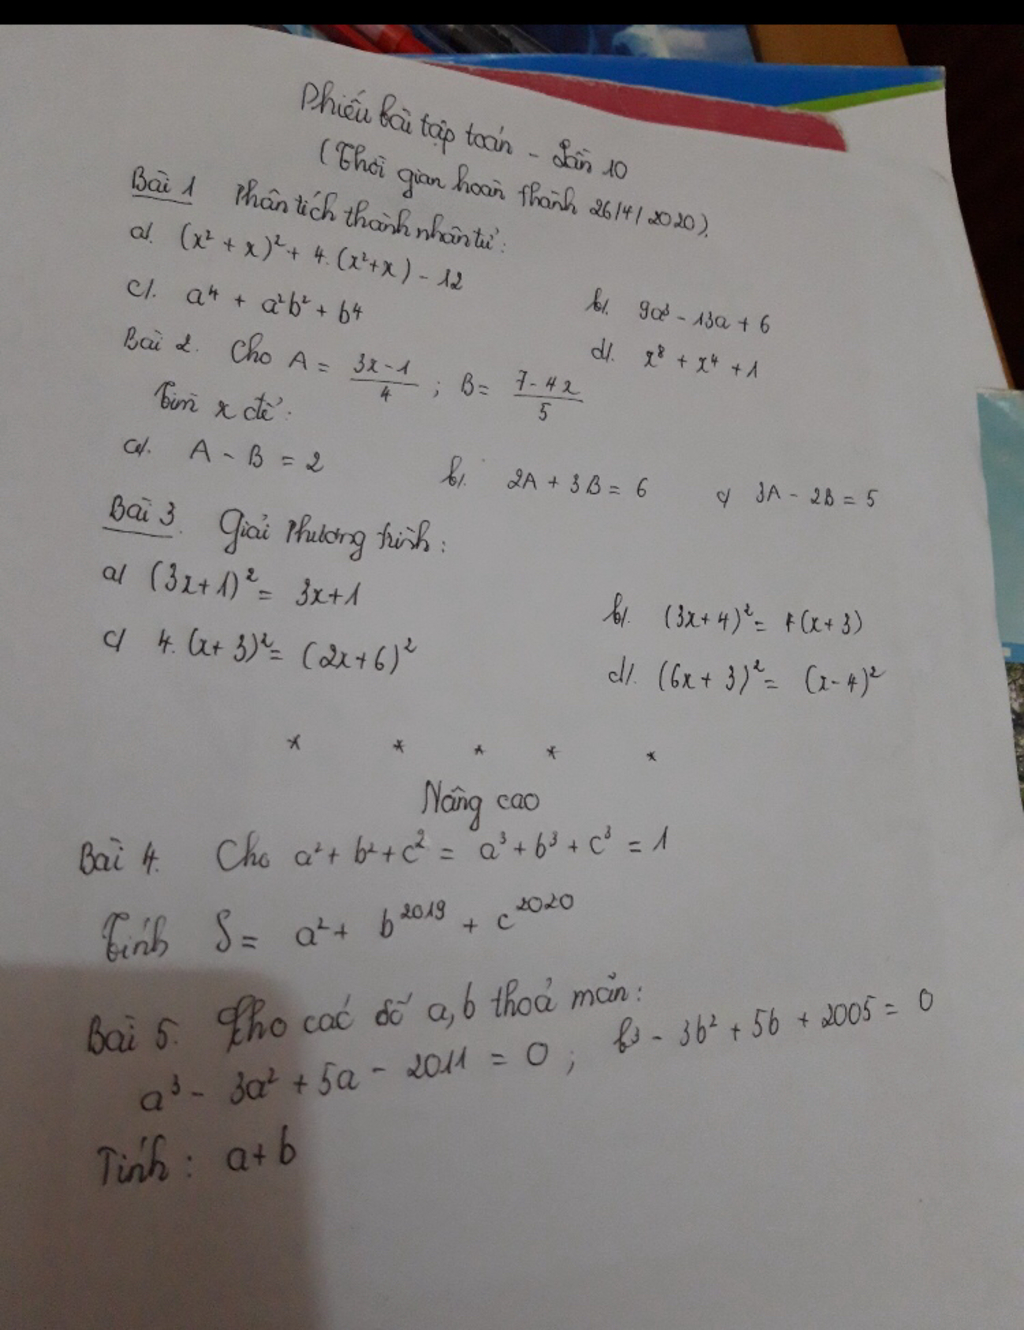 Phiếu bài tập toán - Lần 10
(Thời gian hoàn thành 26/4/2020).
Bài 1 Phân tích thành nhân tử:
a/. (x² + x)² + 4.(x²+x) - 12
b/. 9a³ - 13a + 6
c/. a⁴ + a²b² + b⁴
d/. x⁸ + x⁴ + 1
Bài 2. Cho A = (3x-1)/4 ; B = (7-4x)/5
Tìm x để:
a/. A - B = 2 b/. 2A + 3B = 6 c/ 3A - 2B = 5
Bài 3. Giải Phương trình:
a/ (3x+1)² = 3x+1
b/. (3x+4)² = (x+3)
c/ 4.(x+3)² = (2x+6)²
d/. (6x+3)² = (x-4)²
* * * * *
Nâng cao
Bài 4. Cho a² + b² + c² = a³ + b³ + c³ = 1
Tính S = a² + b²⁰¹⁹ + c²⁰²⁰
Bài 5. Cho các số a, b thoả mãn:
a³ - 3a² + 5a - 2011 = 0 ; b³ - 3b² + 5b + 2005 = 0
Tính : a+b